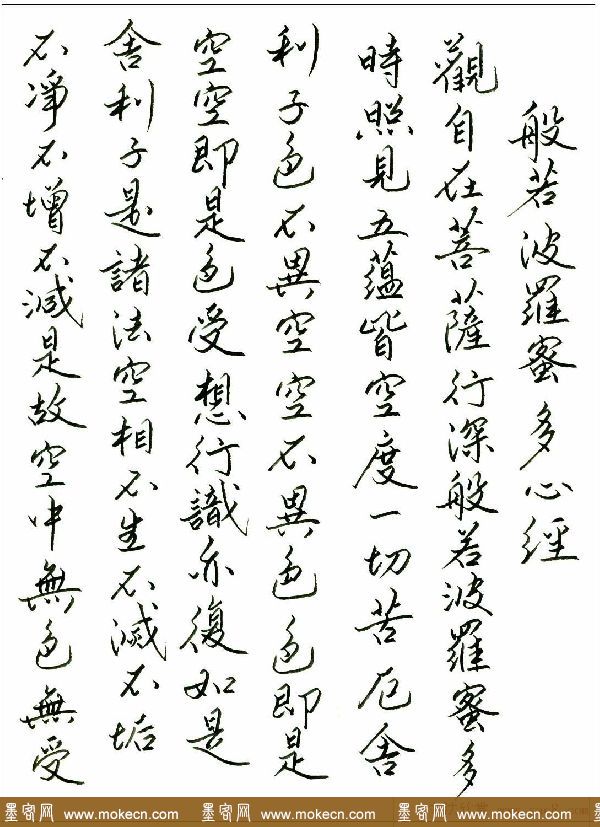 般若波羅蜜多心經
觀自在菩薩行深般若波羅蜜多
時照見五蘊皆空度一切苦厄舍
利子色不異空空不異色色即是
空空即是色受想行識亦復如是
舍利子是諸法空相不生不滅不垢
不淨不增不減是故空中無色無受
墨客网 www.mokecn.com 墨客网 www.mokecn.com 墨客网 www.mokecn.com